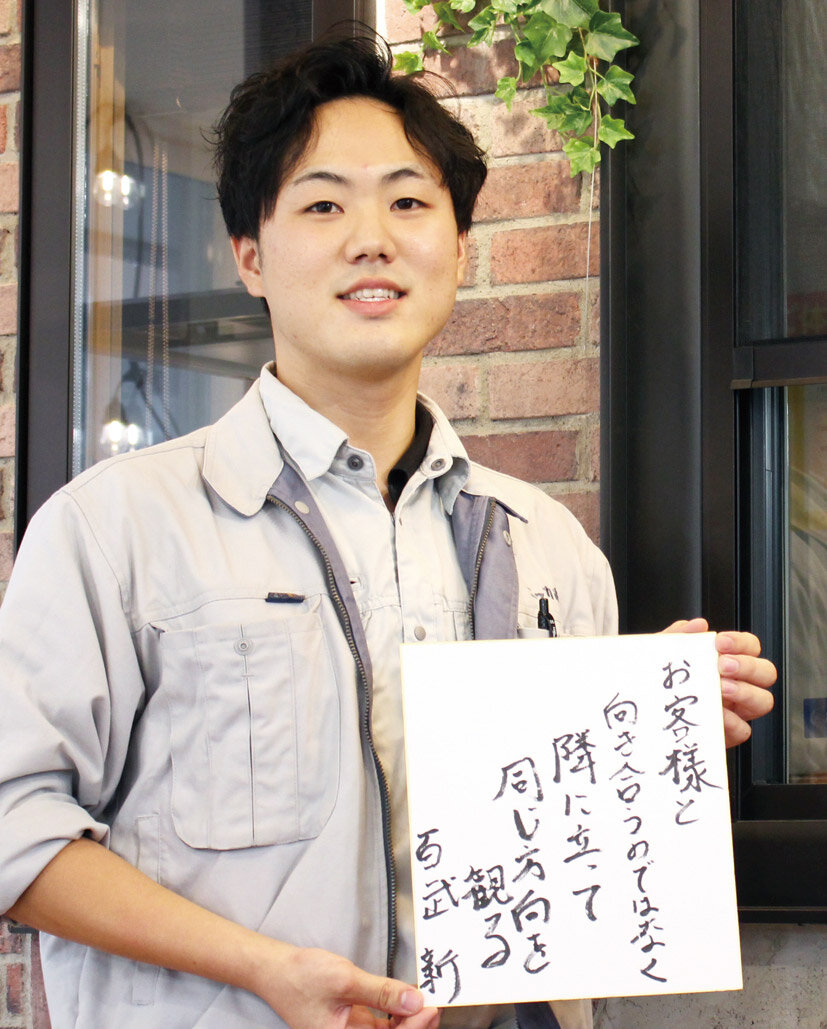 お客様と
向き合うのではなく
隣に立って
同じ方向を
観る
百武 新